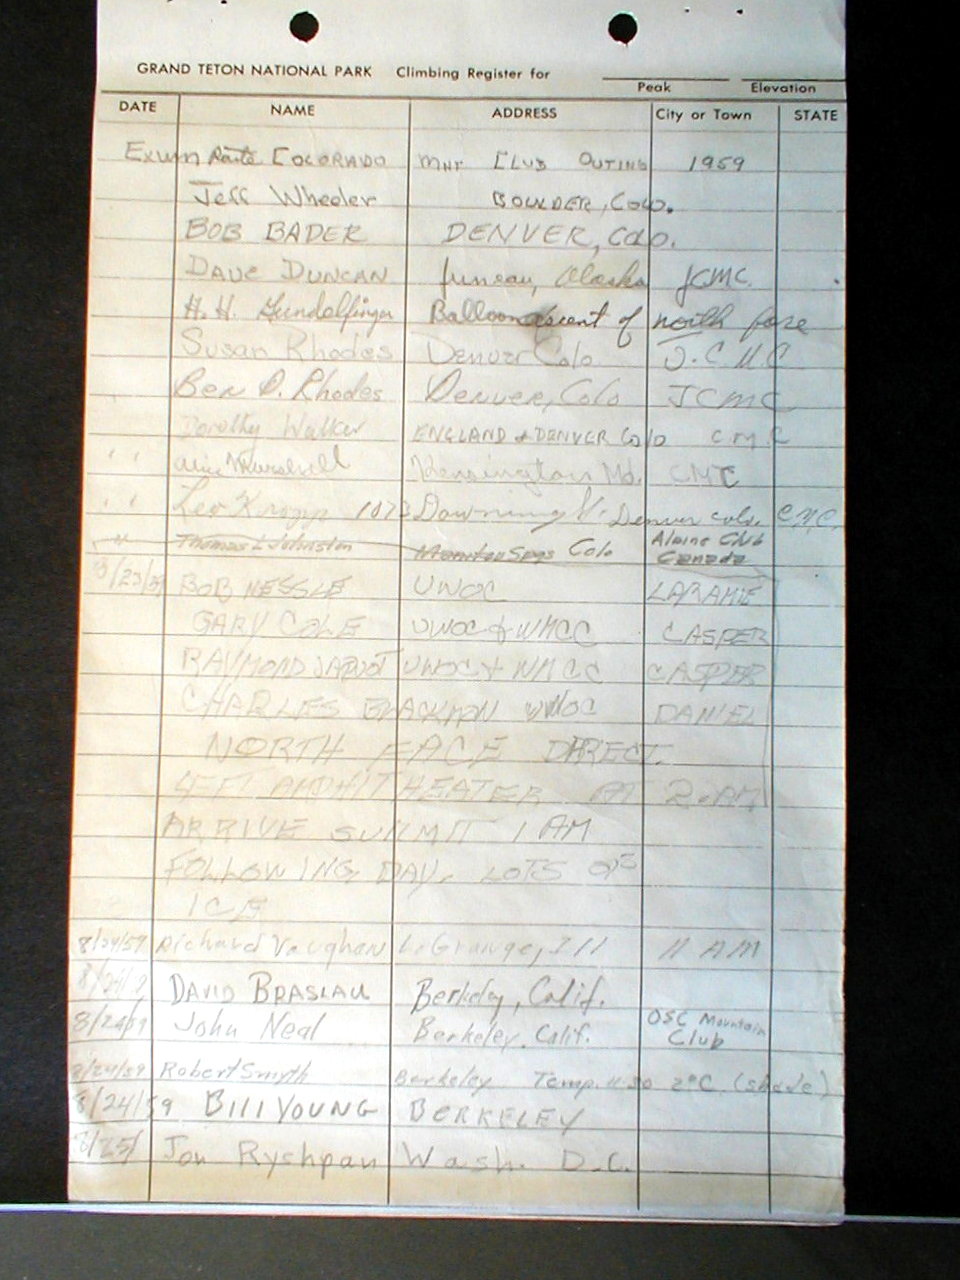 GRAND TETON NATIONAL PARK Climbing Register for
Peak Elevation
DATE NAME ADDRESS City or Town STATE
Exum Route COLORADO MNT CLUB OUTING 1959
Jeff Wheeler BOULDER, Colo.
BOB BADER DENVER, Colo.
DAVE DUNCAN Juneau, Alaska JCMC.
H. H. Gundolfinger Balloon ascent of north face
Susan Rhodes Denver Colo J.C.M.C
Ben D. Rhodes Denver, Colo JCMC
Dorothy Walker ENGLAND & DENVER Colo C M C
" Kensington Md. CMC
" Leo 1073 Downing St. Denver colo. C.M.C.
" Thomas L Johnston Manitou Spgs Colo Alpine Club
Canada
8/23/59 BOB NESSLE UWOC LARAMIE
GARY COLE UWOC & WMCC CASPER
RAYMOND JACQUOT UWOC & WMCC CASPER
CHARLES BLACKMON UWOC DANIEL
NORTH FACE DIRECT.
LEFT AMPHITHEATER AT 2:AM
ARRIVE SUMMIT 1 AM
FOLLOWING DAY. LOTS OF
ICE
8/24/59 Richard Vaughan LaGrange, Ill 11 AM
8/24/59 DAVID BRASLAU Berkeley, Calif.
8/24/59 John Neal Berkeley, Calif. OSC Mountain
Club
8/24/59 Robert Smyth Berkeley Temp. 11:30 2°C (shade)
8/24/59 Bill YOUNG BERKELEY
8/25/ Jon Ryshpan Wash. D.C.